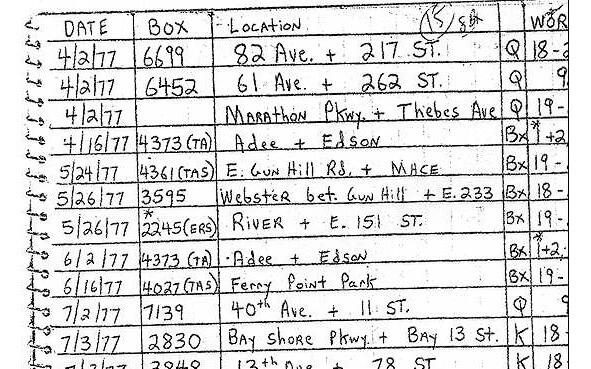 DATE BOX LOCATION 15/ WOR
4/2/77 6699 82 Ave. + 217 ST. Q 18-2
4/2/77 6452 61 Ave. + 262 ST. Q 9
4/2/77 MARAthoN PKwy. + Thebes Ave Q 19-
4/16/77 4373 (TA) Adee + EdSON Bx *1+2
5/24/77 4361 (TAS) E. GUN Hill Rd. + MACE Bx 19-
5/26/77 3595 Webster bet. GUN Hill + E. 233 Bx 18-
5/26/77 *2245 (ERS) RIVER + E. 151 ST. Bx 19-
6/2/77 4373 (TA) Adee + Edson Bx *1+2,
6/16/77 4027 (TAS) Ferry Point Park Bx 19-
7/2/77 7139 40th Ave. + 11 ST. Q 9
7/3/77 2830 BAY SHORE PKwy. + BAY 13 St. K 18-
13th Ave. + 78 ST K 18